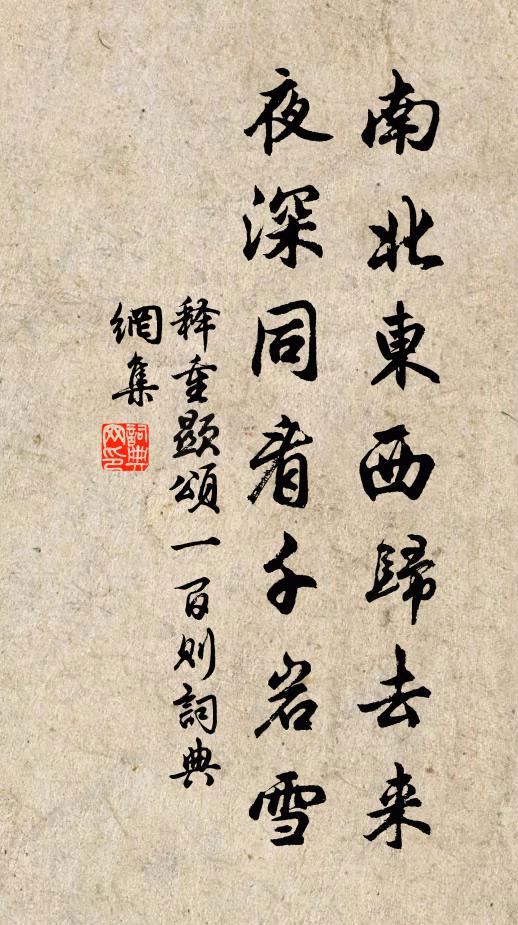 南北東西歸去来
夜深同看千岩雪
释重顯頌一百则詞典
網集
詞典
网印